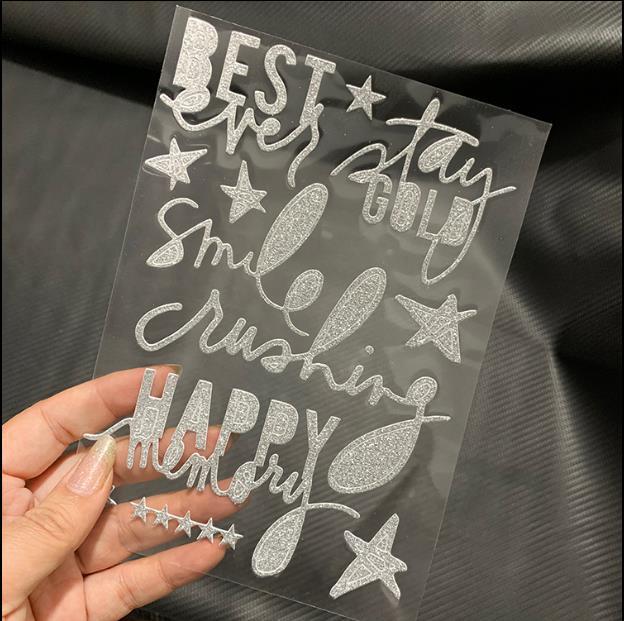 BEST
ever
stay
GOLD
smile
crushing
HAPPY
memory